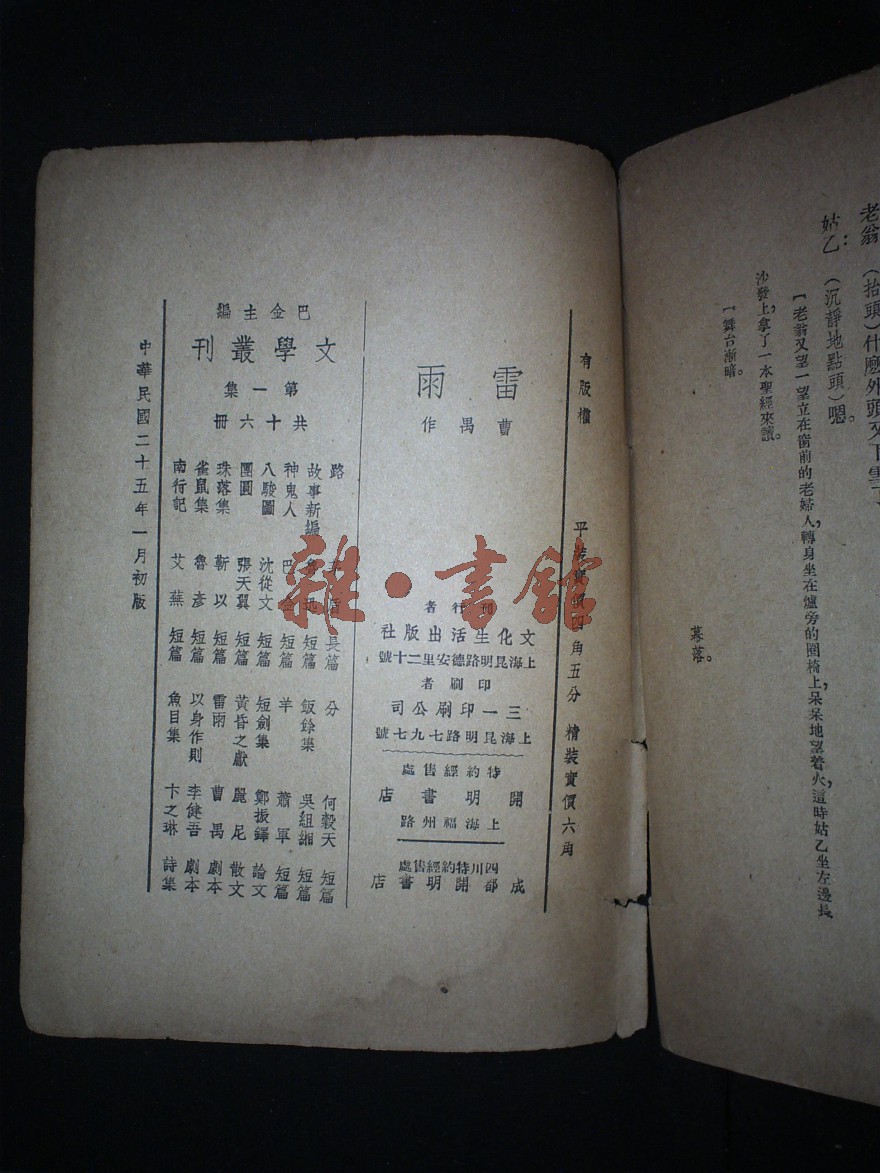 老翁 (抬頭)什麼外頭又下雪了
姑乙:(沉靜地點頭)嗯。
【老翁又望一望立在窗前的老婦人,轉身坐在爐旁的圈椅上,呆呆地望着火,這時姑乙坐左邊長
沙發上,拿了一本聖經來讀。
【舞台漸暗。
幕落。
有版權 平裝實價四角五分 精裝實價六角
雷雨
曹禺作
刊行者
文化生活出版社
上海昆明路德安里二十號
印刷者
三一印刷公司
上海昆明路七九七號
特約經售處
開明書店
上海福州路
四川特約經售處
成都開明書店
巴金主編
文學叢刊
第一集
共十六冊
路 茅盾 長篇 分 何穀天 短篇
故事新編 魯迅 短篇 飯餘集 吳組緗 短篇
神鬼人 巴金 短篇 羊 蕭軍 短篇
八駿圖 沈從文 短篇 短劍集 鄭振鐸 論文
團圓 張天翼 短篇 黃昏之獻 麗尼 散文
珠落集 靳以 短篇 雷雨 曹禺 劇本
雀鼠集 魯彥 短篇 以身作則 李健吾 劇本
南行記 艾蕪 短篇 魚目集 卞之琳 詩集
中華民國二十五年一月初版
雜·書館